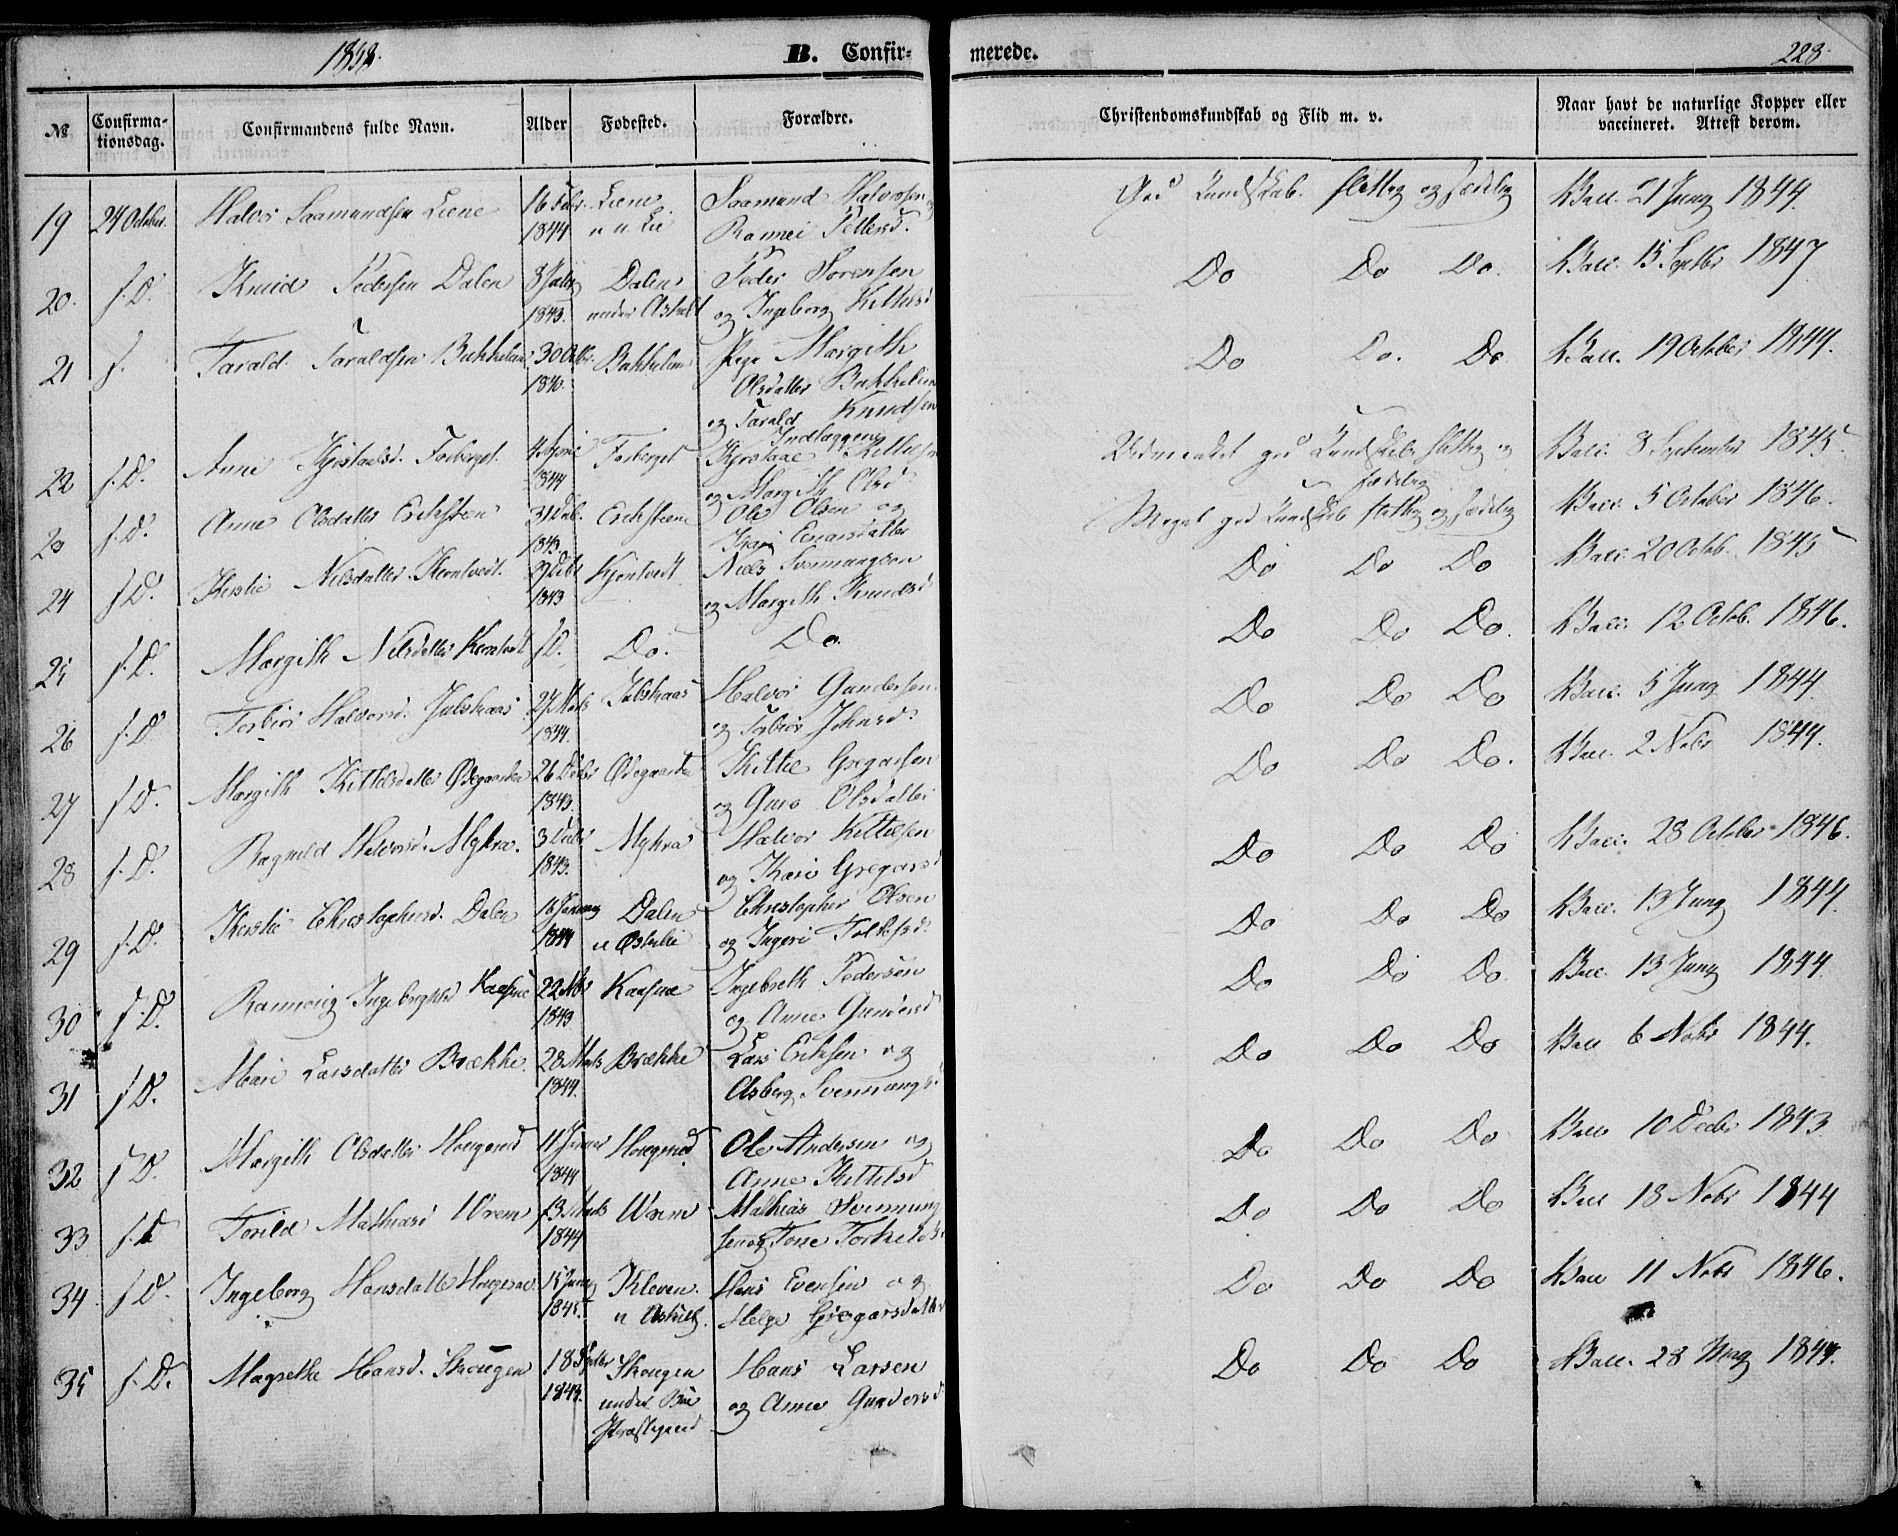 1858.
B. Confirmerede.
228.
№
Confirmationsdag.
Confirmandens fulde Navn.
Alder
Fødested.
Forældre.
Christendomskundskab og Flid m. v.
Naar havt de naturlige Kopper eller vaccineret. Attest derom.
19 24 Octuber Halvor Saamundsen Liene 16 Febr. Liene Saamund Halvorsen og God Kundskab. flittig og sædelig Vacc. 21 Juny 1844.
1844 u. Lie Rannei Pettersd.
20. s.D. Knud Pedersen Dalen 3 1843. Dalen under Peder Sørensen og Ingeborg Kittelsd Do Do Do. Vacc. 15 Septbr 1847
21 s. Tarald Taraldsen Bakkelien 30 Octbr. Bakkelien Pige Margith Do Do. Do Vacc. 19 October 1844.
Olsdatter Bakkelien
og Tarald Knudsen
22 s.D. Anne Kjostaalsd. Forberget 4 April 1844 Forberget Kittelsen og Margith Olsd. Udmærket god Kundskab flittig og sædelig Vacc. 8 September 1845.
23 s.D. Anne Olsdatter Eriksteen 31 Deb. 1843 Ole Olsen og Kari Einarsdatter Meget god Kundskab flittig og sædelig Vacc. 5 October 1846.
24 s.D. Kirstie Nilsdatter Kjerntvedt. 1843 Kjerntvedt Niels Svennungsen og Margith Knudsd Do Do Do Vacc. 20 Octb. 1845
25 s.D. Margith Nilsdatter Kerntvedt s.D. Do. Do. Do Do Do. Vacc. 12 Octob. 1846.
26 s.D Torbior Halvorsd. Julskaas 27 Marts 1844. Julskaas Halvor Gundersen og Torbior Johnsd. Do Do Do Vacc. 5 Juny 1844.
27 s.D. Margith Kittelsdatter Ødegaarden 26 Decbr 1843. Ødegaarden Kittil Gregarsen og Guro Olsdatter Do Do Do. Vacc. 2 Nobr 1844.
28 s.D. Ragnild Halvorsd. Mykra. 3 Decbr 1843. Mykra Halvor Kittelsen og Kari Gregarsd Do Do Do Vacc. 28 October 1846.
29 s.D. Kirstie Christophersd. Dalen 16 January 1844 Dalen u Østerlie Christopher Olsen og Ingeri Folkesd. Do Do Do Vacc. 13 Juny 1844.
30 s.D. Rannoug Ingebregtsd Kaasene 22 1843 Kaasene Ingebreth Pedersen og Anne Gundersd Do Do Do Vacc. 13 Juny 1844.
31 s.D. Mari Larsdatter Brække. 28 Marts 1844. Brække Lars Eriksen og Asberg Svennungsd Do Do Do Vacc 6 Nobr 1844.
32 s.D. Margith Olsdatter Haugerud 11 1844 Haugerud Ole Andersen og Anne Kittelsd Do Do Do Vacc 10 Decbr 1843
33 s.D Torild Mathiasd Ørem 13 Marts 1844 Ørem Mathias Svennungsen og Tone Torkelsd. Do Do Do Vacc 18 Nobr 1844
34 s.D. Ingeborg Hansdatter 15 1845. Kleven u Hans Evensen og Helge Gregarsdatter Do Do Do Vacc 11 Nobr 1846.
35 s.D. Magrethe Hansd. Skougen 18 Septbr 1843. Skougen under Bø Præstegaard Hans Larsen og Anne Gundersd Do Do Do Vacc. 28 May 1844.